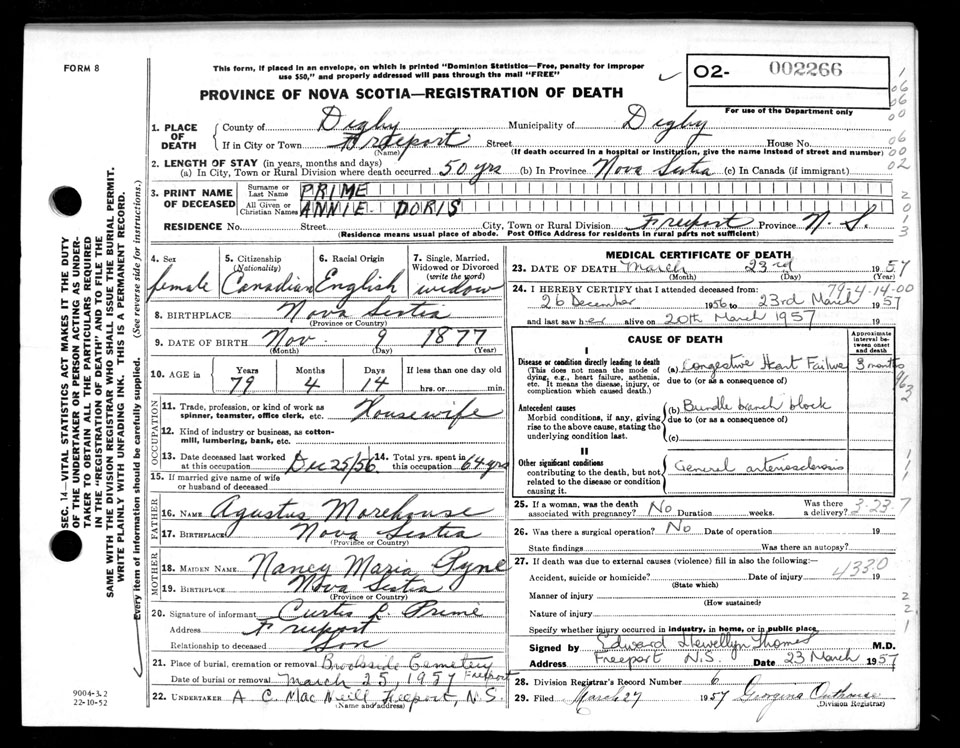 FORM 8
This form, if placed in an envelope, on which is printed "Dominion Statistics—Free, penalty for improper
use $50," and properly addressed will pass through the mail "FREE"
O2- 002266
PROVINCE OF NOVA SCOTIA—REGISTRATION OF DEATH
For use of the Department only
1. PLACE OF DEATH
County of Digby Municipality of Digby
If in City or Town Freeport Street House No.
(Name) (If death occurred in a hospital or institution, give the name instead of street and number)
2. LENGTH OF STAY (in years, months and days)
(a) In City, Town or Rural Division where death occurred 50 yrs (b) In Province Nova Scotia (c) In Canada (if immigrant)
3. PRINT NAME OF DECEASED
Surname or Last Name PRIME
All Given or Christian Names ANNIE DORIS
RESIDENCE No. Street City, Town or Rural Division Freeport Province N. S.
(Residence means usual place of abode. Post Office Address for residents in rural parts not sufficient)
4. Sex female
5. Citizenship (Nationality) Canadian
6. Racial Origin English
7. Single, Married, Widowed or Divorced (write the word) widow
8. BIRTHPLACE Nova Scotia
(Province or Country)
9. DATE OF BIRTH Nov. 9 1877
(Month) (Day) (Year)
10. AGE IN Years 79 Months 4 Days 14 If less than one day old hrs. or min.
OCCUPATION
11. Trade, profession, or kind of work as spinner, teamster, office clerk, etc. Housewife
12. Kind of industry or business, as cotton-mill, lumbering, bank, etc.
13. Date deceased last worked at this occupation Dec 25/56 14. Total yrs. spent in this occupation 64 yrs
15. If married give name of wife or husband of deceased
FATHER
16. NAME Agustus Morehouse
17. BIRTHPLACE Nova Scotia
(Province or Country)
MOTHER
18. MAIDEN NAME Nancy Maria Pyne
19. BIRTHPLACE Nova Scotia
(Province or Country)
20. Signature of informant Curtis L. Prime
Address Freeport
Relationship to deceased Son
21. Place of burial, cremation or removal Brookside Cemetery
Freeport
Date of burial or removal March 25, 1957
22. UNDERTAKER A. C. Mac Neill Freeport, N. S.
(Name and address)
MEDICAL CERTIFICATE OF DEATH
23. DATE OF DEATH March 23rd 1957
(Month) (Day) (Year)
79-4-14-00
24. I HEREBY CERTIFY that I attended deceased from:
26 December 1956 to 23rd March 1957
and last saw her alive on 20th March 1957 19
CAUSE OF DEATH
Approximate interval between onset and death
I
Disease or condition directly leading to death
(This does not mean the mode of dying, e.g., heart failure, asthenia, etc. It means the disease, injury, or complication which caused death.)
(a) Congestive Heart Failure 3 months
due to (or as a consequence of)
Antecedent causes
Morbid conditions, if any, giving rise to the above cause, stating the underlying condition last.
(b) Bundle branch block
due to (or as a consequence of)
(c)
II
Other significant conditions
contributing to the death, but not related to the disease or condition causing it.
General arteriosclerosis
25. If a woman, was the death associated with pregnancy? No Duration weeks. Was there a delivery? 3-23-7
26. Was there a surgical operation? No Date of operation 19
State findings Was there an autopsy?
27. If death was due to external causes (violence) fill in also the following:—
4330
Accident, suicide or homicide? Date of injury 19
(State which)
Manner of injury
(How sustained)
Nature of injury
Specify whether injury occurred in industry, in home, or in public place,
Signed by Edward Llewellyn Thomas M.D.
Address Freeport N.S. Date 23 March 1957
28. Division Registrar's Record Number 6
29. Filed March 27 1957 Georgina Outhouse
(Division Registrar)
SEC. 14—VITAL STATISTICS ACT MAKES IT THE DUTY
OF THE UNDERTAKER OR PERSON ACTING AS UNDER-
TAKER TO OBTAIN ALL THE PARTICULARS REQUIRED
IN THE "REGISTRATION OF DEATH" AND TO FILE THE
SAME WITH THE DIVISION REGISTRAR WHO SHALL ISSUE THE BURIAL PERMIT.
WRITE PLAINLY WITH UNFADING INK. THIS IS A PERMANENT RECORD.
Every item of information should be carefully supplied. (See reverse side for instructions.)
9004-3.2
22-10-52